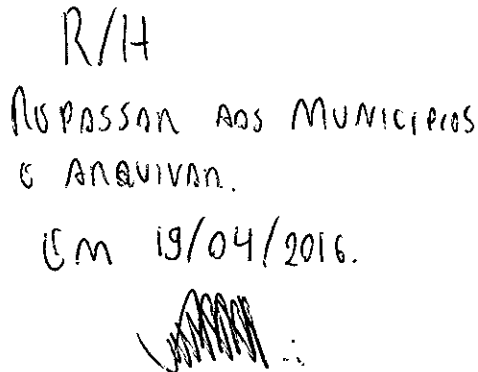 R/H
REPASSAR AOS MUNICIPIOS
E ARQUIVAR.
EM 19/04/2016.